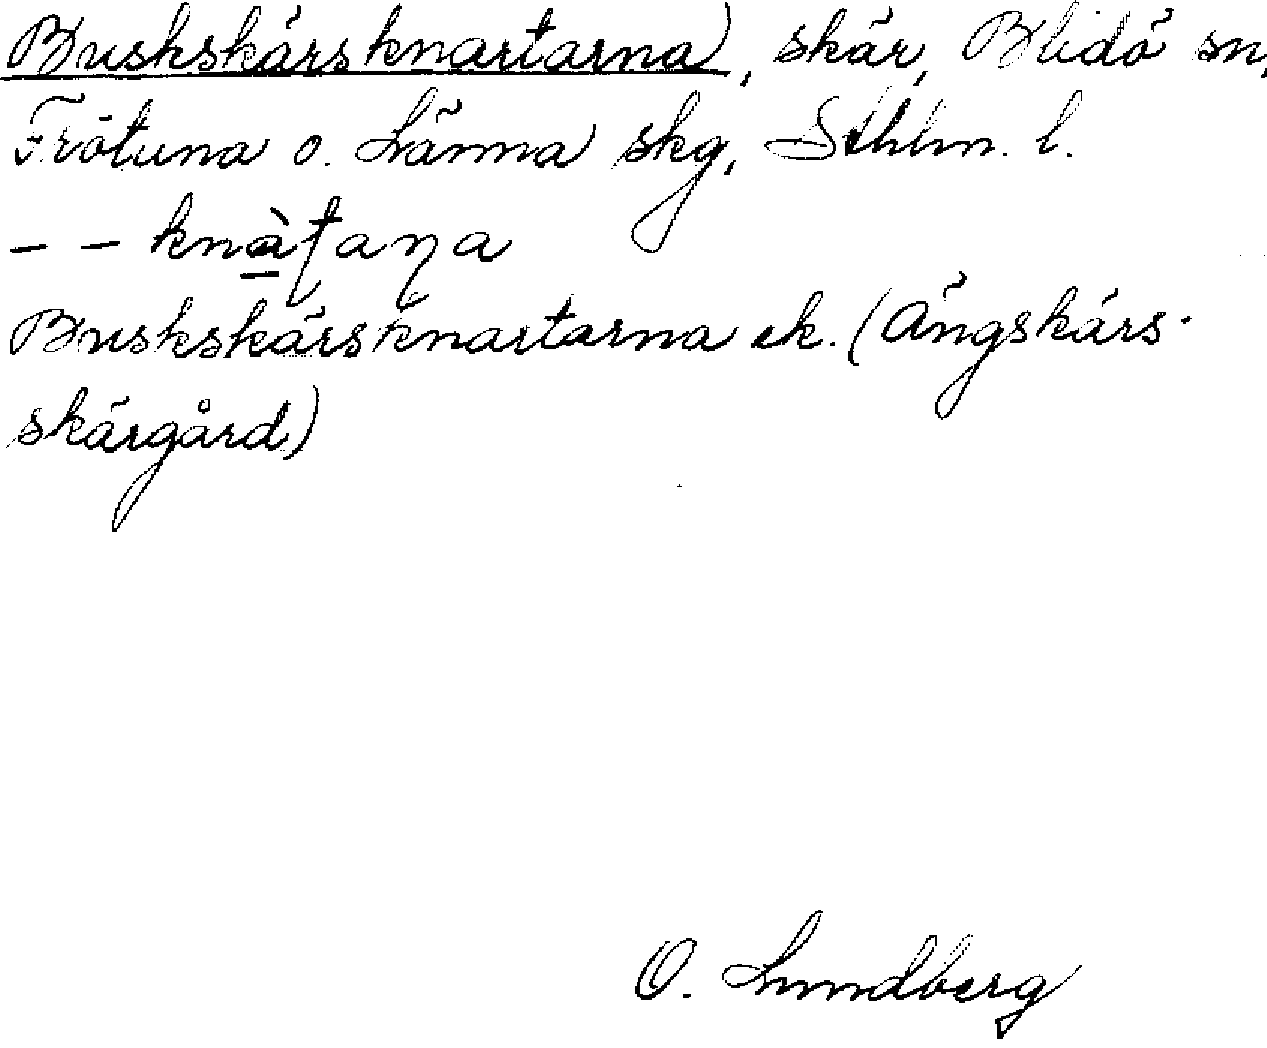 Buskskärsknartarna), skär, Blidö sn,
Frötuna o. Länna skg, Sthlm. l.
– – knàƫaꞃa
Buskskärsknartarna ek. (Ängskärs-
skärgård)
O. Lundberg